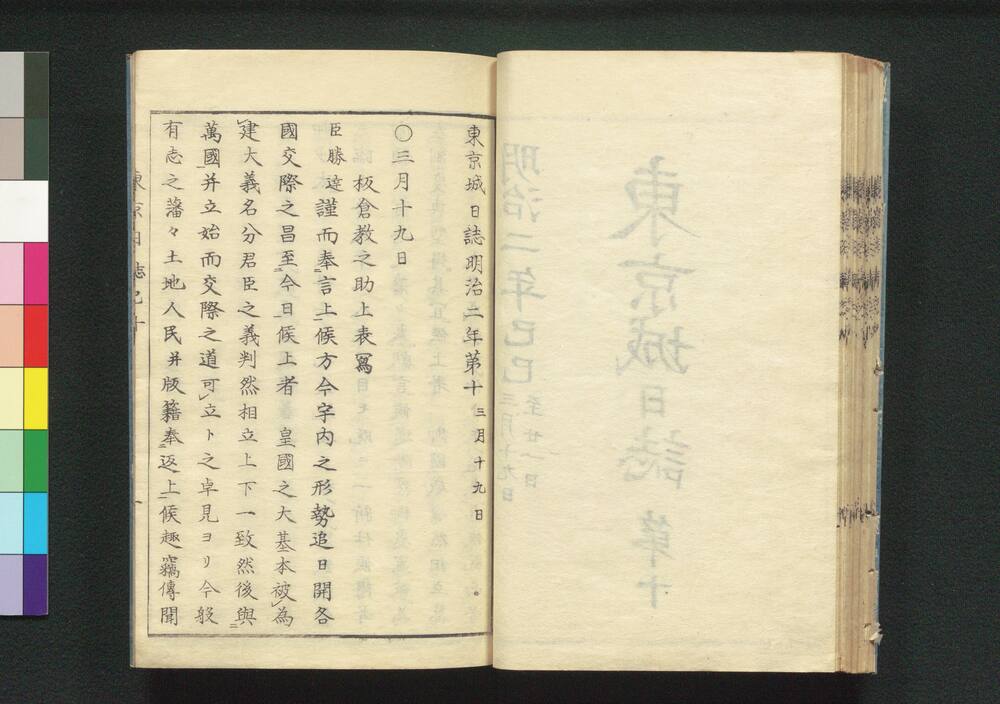 東京城日誌明治二年第十三月十九日
○三月十九日
板倉教之助上表寫
臣勝達謹而奉言上候方今宇内之形勢追日開各
國交際之昌至今日候上者皇國之大基本被為
建大義名分君臣之義判然相立上下一致然後與
萬國并立始而交際之道可立ト之卓見ヨリ今般
有志之藩々土地人民并版籍奉返上候趣竊傳聞
東京城日誌第十
明治二年己巳三月十九日
至廿一日